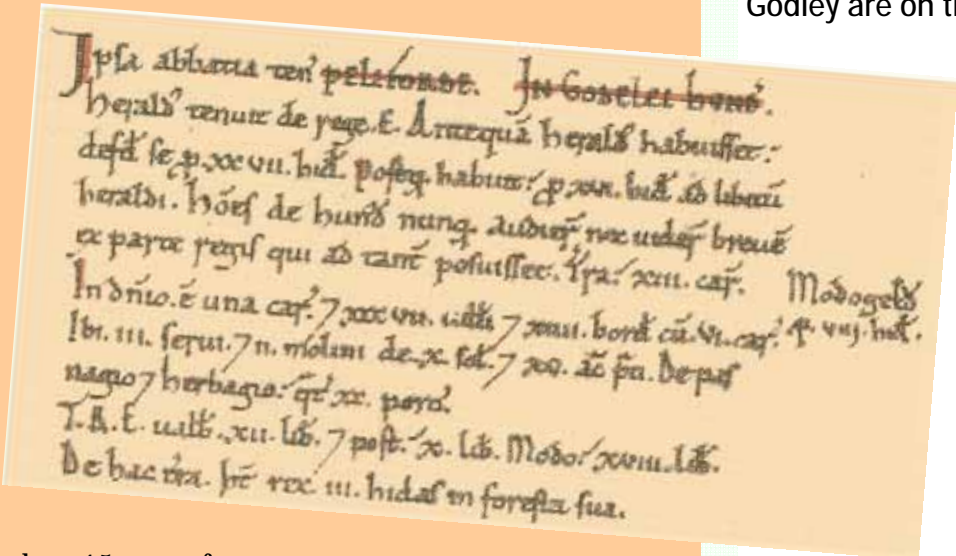 Godley are on th
Ipsa abbatia ten' pelifonde. In Godelei hund'.
Herald' tenuit de rege.E. Antequā herald habuisset:
defd' se p.xxvii. hid'. postq. habuit: p xvi. hid' ad libitū
heraldi. hōes de hund' nunq. audier' nec uider' breuē
ex parte regis qui ad tant' posuisset. Tra.' xiii. car'. Modo geld'
In dn̄io.ē una car'. 7 xxxvii. uilli 7 xiiii. bord' cū.vi.car'. p. viij. hid'.
Ibi. iii. serui. 7 ii. molini de.x. sol'. 7 xv. āc p̄ti. De pas
nagio 7 herbagio: qt' xx. porc'.
T.R.E. ualb'.xii. lib'. 7 post.' x. lib'. Modo.' xviii.lib'.
De hac tra. ht' rex iii. hidas in foresta sua.